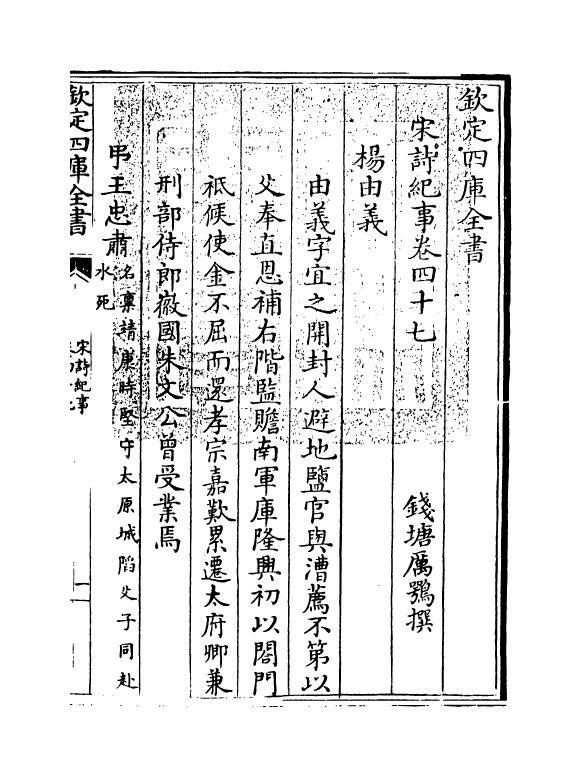 欽定四庫全書
宋詩紀事卷四十七
錢塘厲鶚撰
楊由義
由義字宜之開封人避地鹽官與漕薦不第以
父奉直恩補右階監贍南軍庫隆興初以閤門
祗候使金不屈而還孝宗嘉歎累遷太府卿兼
刑部侍郎徽國朱文公曾受業焉
弔王忠肅
名稟靖康時堅守太原城陷父子同赴
水死
欽定四庫全書
宋詩紀事
一